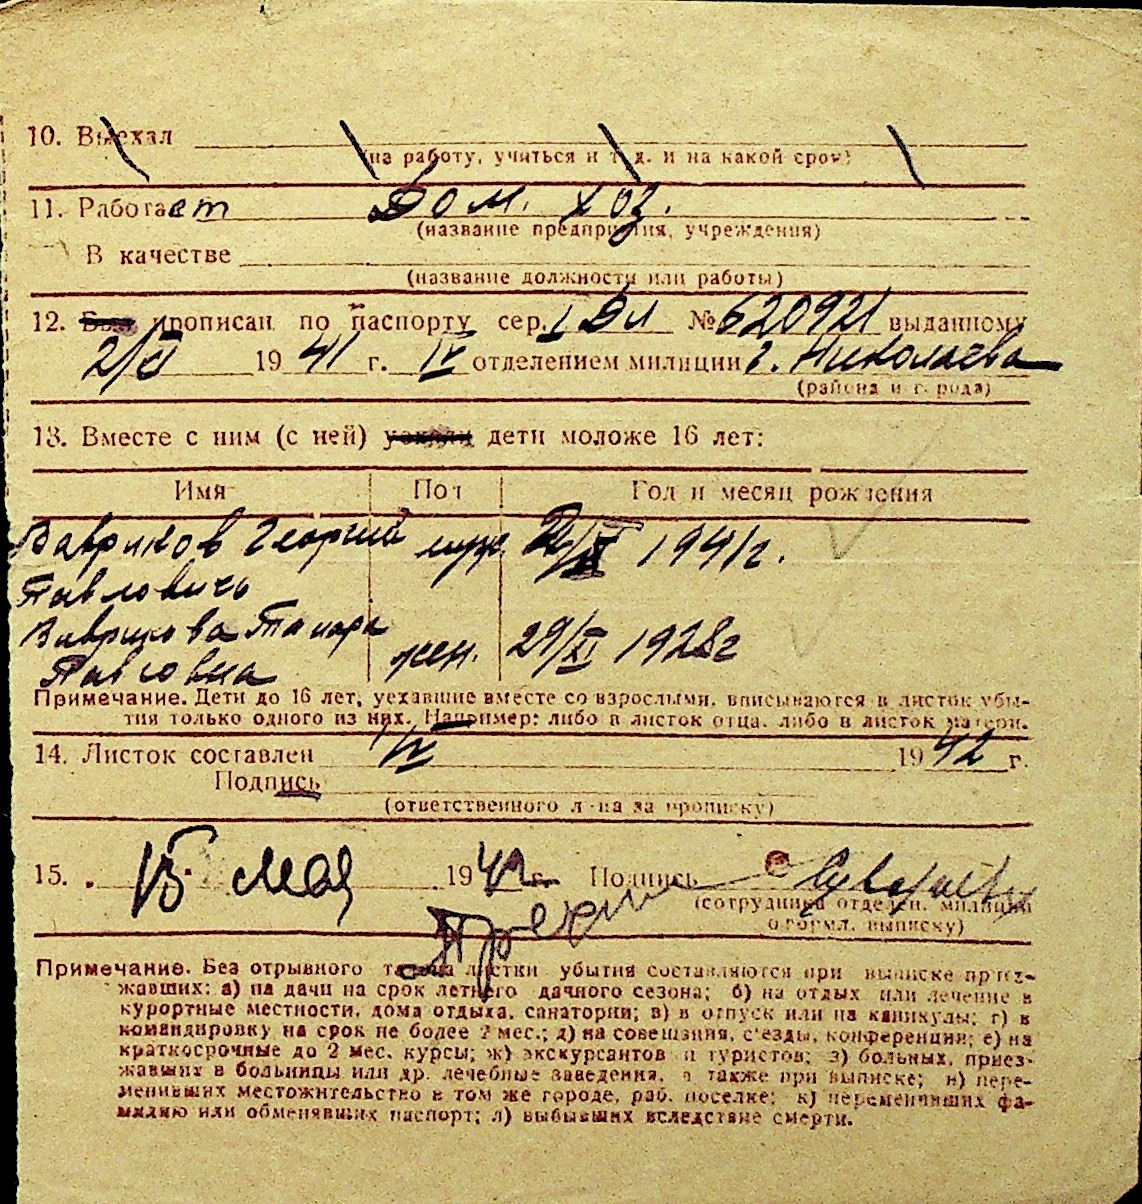 10. Выехал
(на работу, учиться и т. д. и на какой срок)
11. Работает Дом. хоз.
(название предприятия, учреждения)
В качестве
(название должности или работы)
12. Был прописан по паспорту сер. I ЭЛ № 620921 выданному
2/VI 1941 г. IV отделением милиции г. Николаева
(района и города)
13. Вместе с ним (с ней) уехали дети моложе 16 лет:
Имя Пол Год и месяц рождения
Георгий муж 1941г.
Павловичь
Тамара жен. 29/XI 1928г
Павловна
Примечание. Дети до 16 лет, уехавшие вместе со взрослыми, вписываются в листок убы-
тия только одного из них. Например: либо в листок отца, либо в листок матери.
14. Листок составлен 1942 г.
Подпись
(ответственного л-ца за прописку)
15. 15 мая 1942 г. Подпись
(сотрудника отделен. милиции
оформл. выписку)
Примечание. Без отрывного талона листки убытия составляются при выписке приез-
жавших: а) на дачи на срок летнего дачного сезона; б) на отдых или лечение в
курортные местности, дома отдыха, санатории; в) в отпуск или на каникулы; г) в
командировку на срок не более 2 мес.; д) на совещания, с'езды, конференции; е) на
краткосрочные до 2 мес. курсы; ж) экскурсантов и туристов; з) больных, приез-
жавших в больницы или др. лечебные заведения, а также при выписке; и) пере-
менивших местожительство в том же городе, раб. поселке; к) переменивших фа-
милию или обменявших паспорт; л) выбывших вследствие смерти.